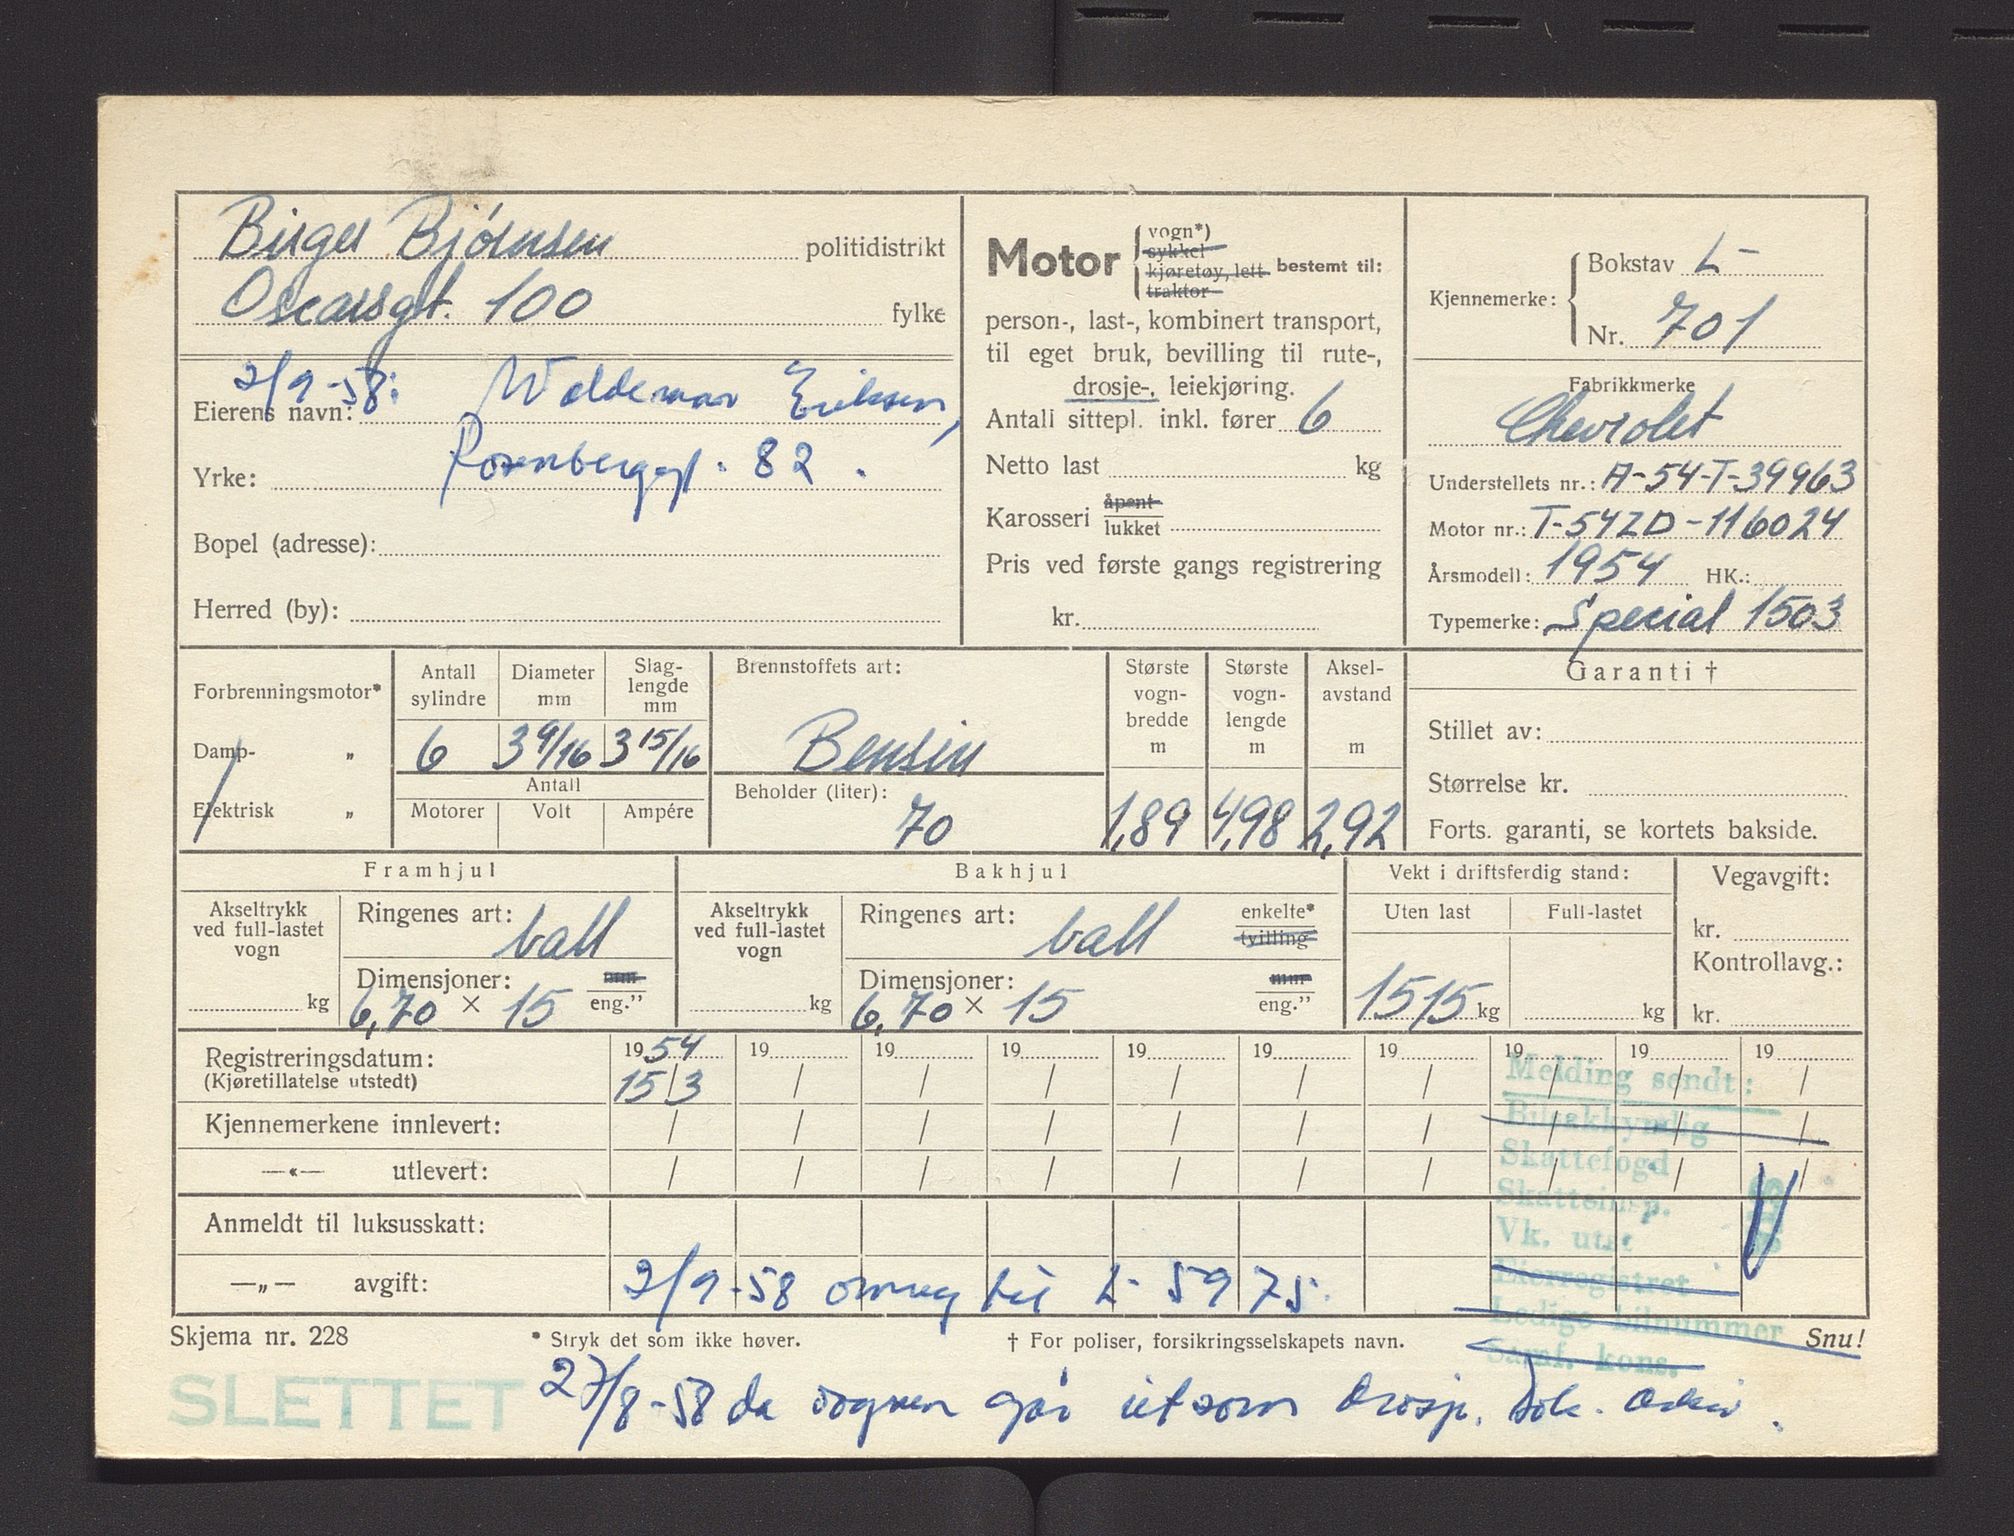 Birger Bjórnsen politidistrikt
Oscarsgt. 100 fylke
2/9-58: Waldemar Eriksen,
Eierens navn:
Rosenbergsgt. 82.
Yrke:
Bopel (adresse):
Herred (by):
Motor vogn*)
sykkel
kjøretøy, lett
traktor
bestemt til:
person-, last-, kombinert transport,
til eget bruk, bevilling til rute-,
drosje-, leiekjøring.
Antall sittepl. inkl. fører 6
Netto last kg
Karosseri åpent
lukket
Pris ved første gangs registrering
kr.
Kjennemerke: Bokstav L-
Nr. 701
Fabrikkmerke
Chevrolet
Understellets nr.: A-54-T-39963
Motor nr.: T-54ZD-116024
Årsmodell: 1954 HK.:
Typemerke: Special 1503
Forbrenningsmotor*
Damp- „
Elektrisk „
Antall sylindre
6
Diameter mm
3 9/16
Slag-
lengde
mm
3 15/16
Antall
Motorer Volt Ampére
Brennstoffets art:
Bensin
Beholder (liter):
70
Største
vogn-
bredde
m
1,89
Største
vogn-
lengde
m
4,98
Aksel-
avstand
m
2,92
Garanti †
Stillet av:
Størrelse kr.
Forts. garanti, se kortets bakside.
Framhjul
Akseltrykk
ved full-lastet
vogn
kg
Ringenes art:
ball
Dimensjoner: mm
6,70 × 15 eng.”
Bakhjul
Akseltrykk
ved full-lastet
vogn
kg
Ringenes art: enkelte*
ball tvilling
Dimensjoner: mm
6,70 × 15 eng.”
Vekt i driftsferdig stand:
Uten last Full-lastet
1515 kg kg
Vegavgift:
kr.
Kontrollavg.:
kr.
Registreringsdatum: 1954 19 19 19 19 19 19 19 19 19
(Kjøretillatelse utstedt) 15/3 / / / / / / / / /
Kjennemerkene innlevert: / / / / / / / / / /
—«— utlevert: / / / / / / / / / /
Anmeldt til luksusskatt:
—„— avgift: 2/9-58 omreg til L-5975.
Melding sendt:
Bilsakkyndig
Skattefogd
Skatteinsp.
Vk. utst
Eierregistret
Ledige bilnummer
Saml. kons.
Skjema nr. 228 * Stryk det som ikke høver. † For poliser, forsikringsselskapets navn. Snu!
SLETTET
27/8-58 da vognen går ut som drosje. Dok. arkiv.